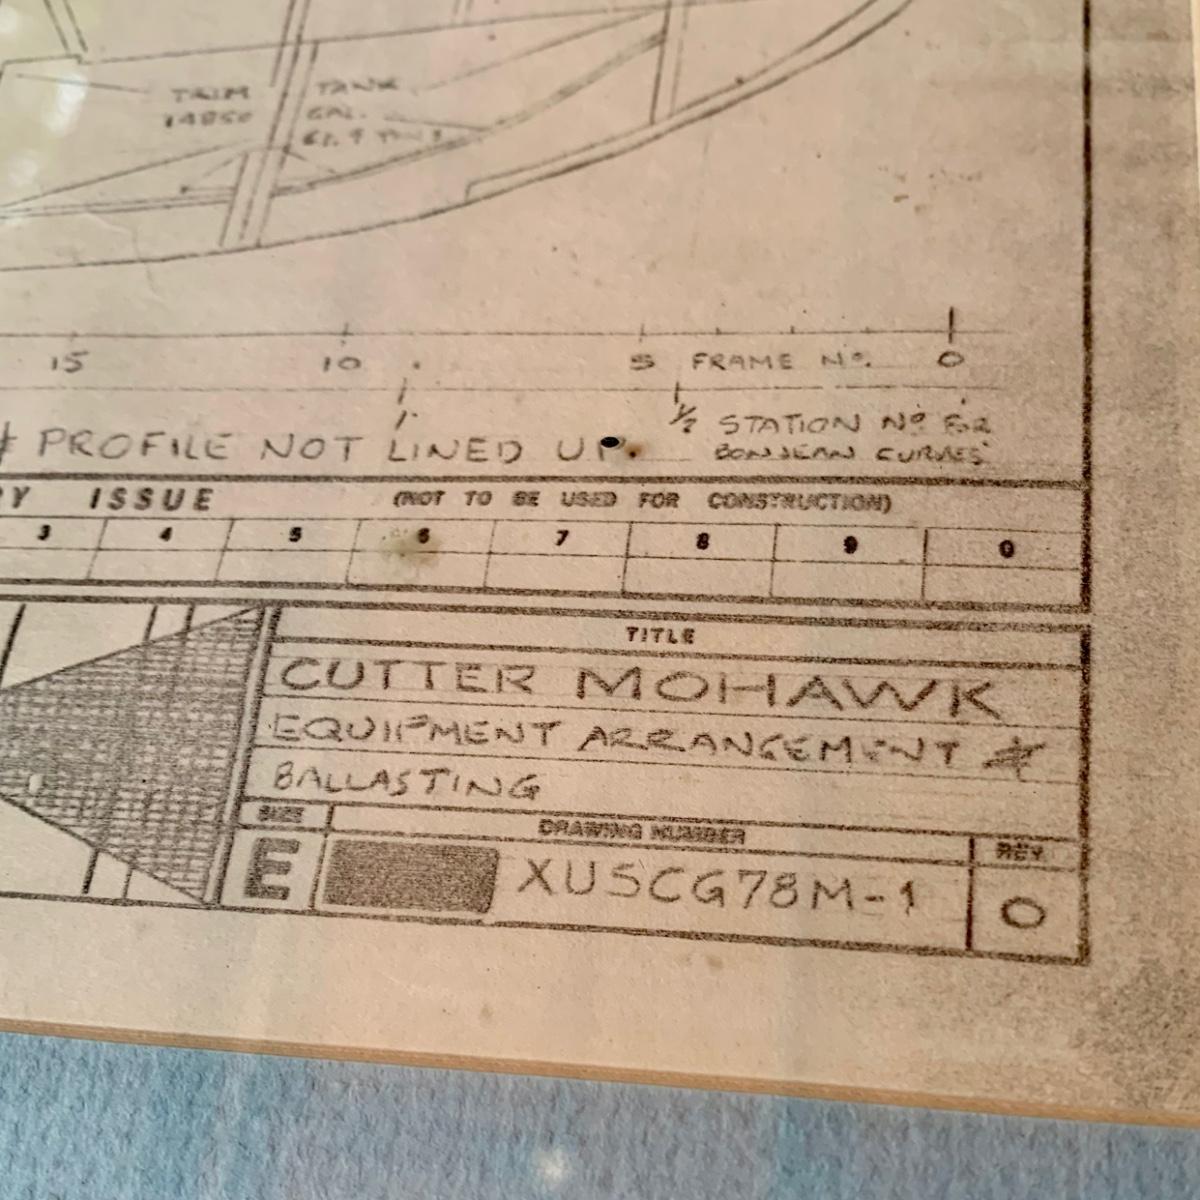 TRIM TANK
14850 GAL.
15 10 5 FRAME Nº. 0
½ STATION Nº FOR
BONJEAN CURVES
PROFILE NOT LINED UP.
Y ISSUE (NOT TO BE USED FOR CONSTRUCTION)
3 4 5 6 7 8 9 0
TITLE
CUTTER MOHAWK
EQUIPMENT ARRANGEMENT &
BALLASTING
SIZE DRAWING NUMBER REV
E XUSCG78M-1 0